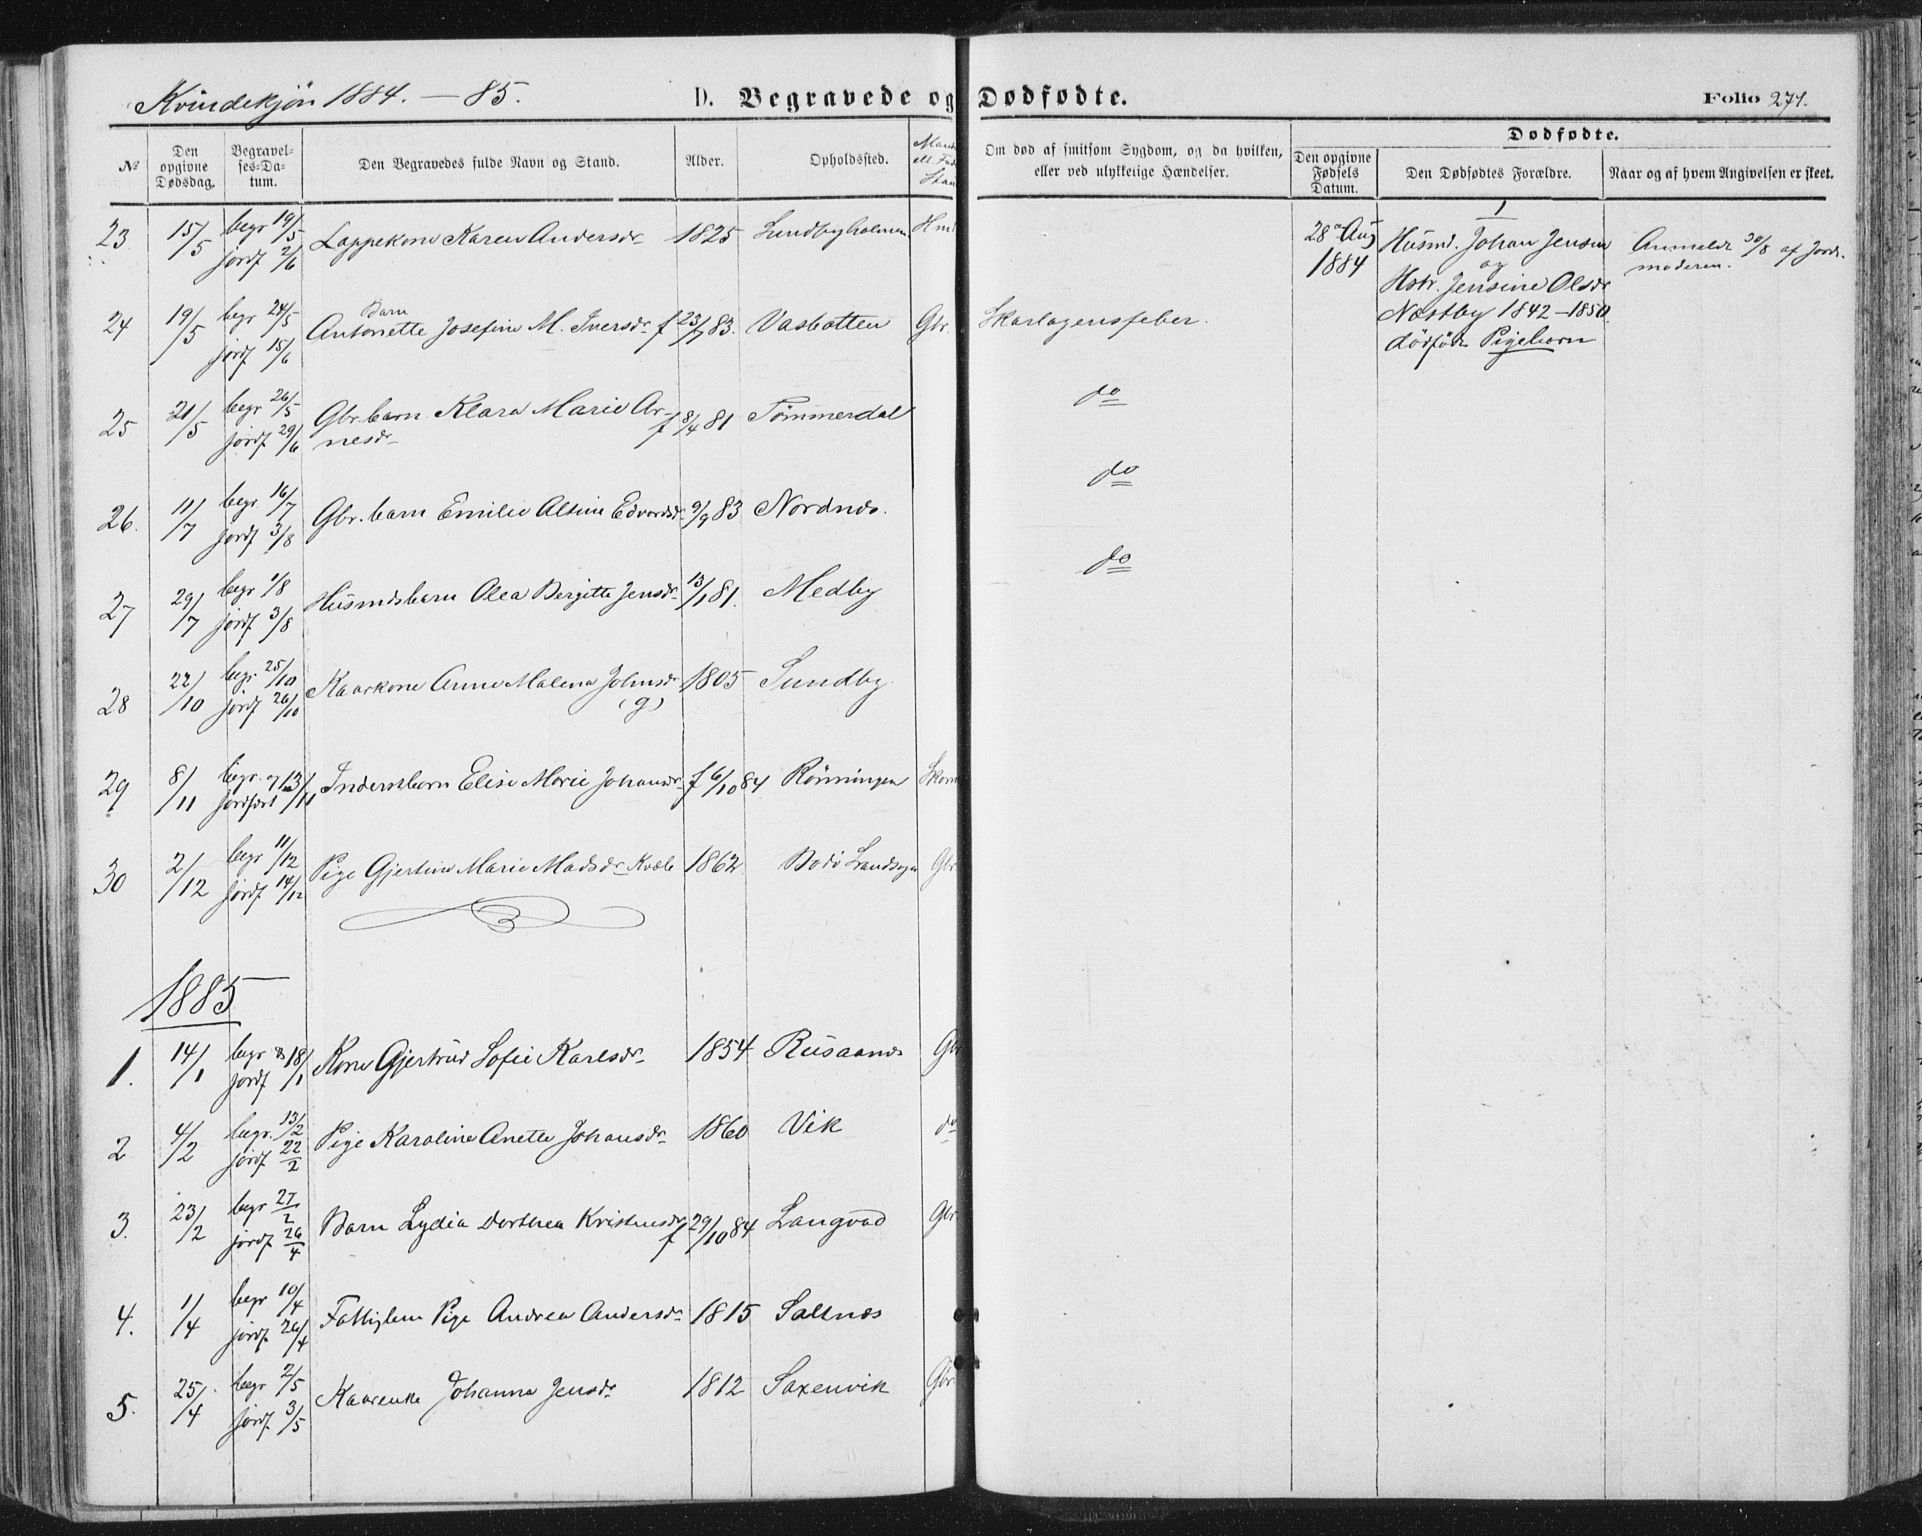 Kvindekjön 1884. — 85.
D. Begravede og Dødfødte.
Folio 271.
No
Den opgivne Dødsdag.
Begravel-
ses-Da-
tum.
Den Begravedes fulde Navn og Stand.
Alder.
Opholdssted.
Om død af smitsom Sygdom, og da hvilken,
eller ved ulykkelige Hændelser.
Dødfødte.
Den opgivne
Fødsels
Datum.
Den Dødfødtes Forældre.
Naar og af hvem Angivelsen er skeet.
23. 15/5 begr 19/5 Lappekone Karen Andersdr 1825 Lundbyholmen Hmd
jordf 2/6
24 19/5 begr 24/5 Barn
Antonette Josefine M. Iversdr f 23/7 83. Vasbotten Gbr. Skarlagensfeber.
jordf 15/6
25 21/5 begr 26/5 Gbr.barn Klara Marie Ar- f 8/4 81 Tömmerdal do
jordf 29/6 nesdr
26. 11/7 begr 16/7 Gbr.barn Emilie Altine Edvardsdr 9/9 83 Nordnes. do
jordf 3/8
27 29/7 begr 1/8 Husmdsbarn Olea Bergitte Jensdr 13/1 81. Medby do
jordf 3/8
28 22/10 begr. 25/10 Kaarkone Anne Malena Johnsdr 1805 Sundby.
jordf 26/10 (g)
29 8/11 begr. og 13/11 Inderstbarn Elise Marie Johansdr f 6/10 84 Rönningen
jordfæst
30 2/12 begr 11/12 Pige Gjertine Marie Madsdr Kvæle 1862 Bodö Landsogn Gbr
jordf 14/12
1885
1. 14/1 begr & 18/1 Kone Gjertrud Sofie Karlsdr 1854 Rusaanes Gbr
jordf
2 4/2 begr. 13/2 Pige Karoline Anette Johansdr 1860 Vik do
jordf 22/2
3. 23/2 begr 27/2 Barn Lydia Dorthea Kristensdr f 29/10 84 Langvad Gbr.
jordf 26/4
4. 1/4 begr 10/4 Fattiglem Pige Andrea Andersdr 1815 Saltnes
jordf. 26/4
5. 25/4 begr 2/5 Kaarenke Johanna Jensdr 1812 Saxenvik Gbr.
jordf. 3/5
1
28 Aug 1884
Husmd. Johan Jensen
og
Hstr. Jensine Olsdr
Næstby 1842 – 1850.
dödfödt Pigebarn
Anmeldt 30/8 af Jord-
moderen.